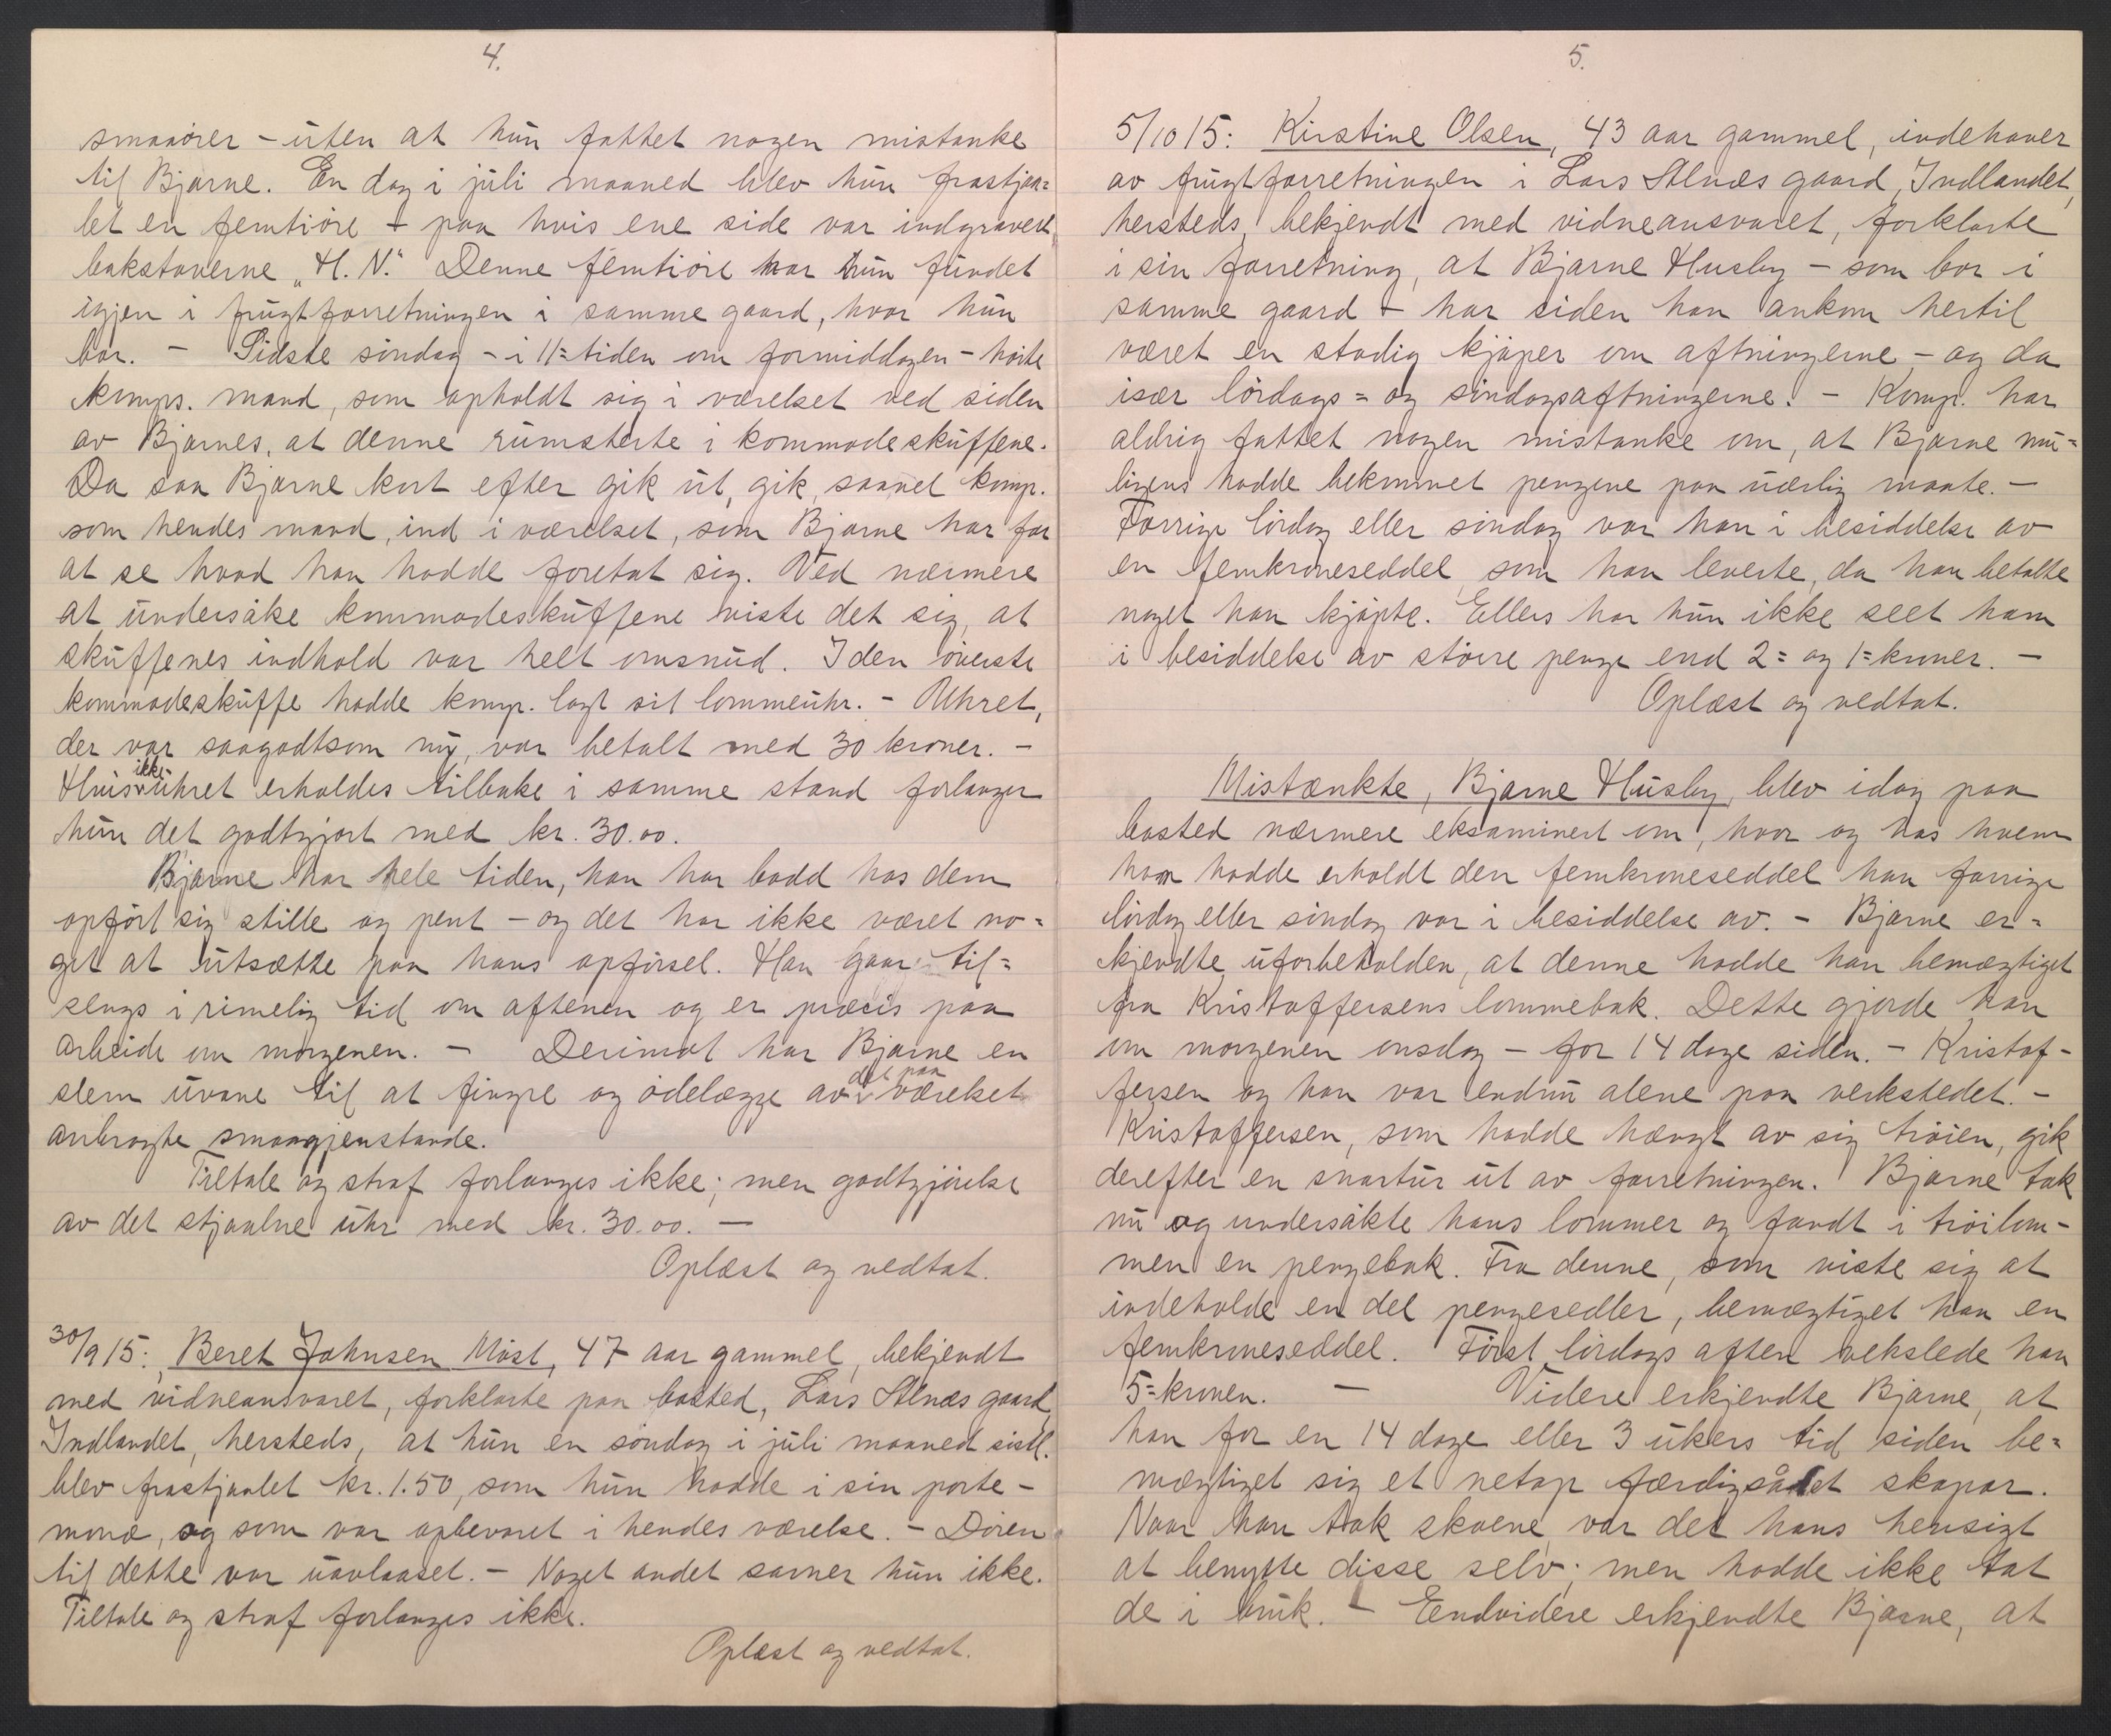 4.
smaaører - uten at hun fattet nogen mistanke
til Bjarne. En dag i juli maaned blev hun frastjaa=
let en femtiøre - paa hvis ene side var indgravert
bokstaverne "H. N." Denne femtiøre har hun fundet
igjen i frugtforretningen i samme gaard, hvor hun
bor. - Sidste søndag - i 11=tiden om formiddagen - hørte
komps. mand, som opholdt sig i værelset ved siden
av Bjarnes, at denne rumsterte i kommodeskuffene.
Da saa Bjarne kort efter gik ut, gik, saavel komp.
som hendes mand, ind i værelset, som Bjarne har for
at se hvad han hadde foretat sig. Ved nærmere
at undersøke kommodeskuffene viste det sig, at
skuffenes indhold var helt omsnud. I den øverste
kommodeskuffe hadde komp. lagt sit lommeuhr. - Uhret,
der var saagodtsom ny, var betalt med 30 kroner. -
Hvis ikke uhret erholdes tilbake i samme stand forlanger
hun det godtgjort med kr. 30.00.
Bjarne har hele tiden, han har bodd hos dem
opført sig stille og pent - og det har ikke været no=
get at utsætte paa hans opførsel. Han gaar til=
sengs i rimelig tid om aftenen og er præcis paa
arbeide om morgenen. - Derimot har Bjarne en
slem uvane til at fingre og ødelægge av det paa værelset
anbragte smaagjenstande.
Tiltale og straf forlanges ikke; men godtgjørelse
av det stjaalne uhr med kr. 30.00. -
Oplæst og vedtat.
30/9 15: Beret Johnsen Møst, 47 aar gammel, bekjendt
med vidneansvaret, forklarte paa bosted, Lars Alnæs gaard,
Indlandet, hersteds, at hun en søndag i juli maaned sistl.
blev frastjaalet kr. 1.50, som hun hadde i sin porte-
monæ, og som var opbevaret i hendes værelse. - Døren
til dette var uavlaaset. - Noget andet savner hun ikke.
Tiltale og straf forlanges ikke.
Oplæst og vedtat.
5.
5/10 15: Kirstine Olsen, 43 aar gammel, indehaver
av frugtforretningen i Lars Alnæs gaard, Indlandet,
hersteds, bekjendt med vidneansvaret, forklarte
i sin forretning, at Bjarne Husby - som bor i
samme gaard - har siden han ankom hertil
været en stadig kjøper om aftningerne - og da
især lørdags= og søndagsaftningerne. - Komp. har
aldrig fattet nogen mistanke om, at Bjarne mu=
ligens hadde bekommet pengene paa uærlig maate. -
Forrige lørdag eller søndag var han i besiddelse av
en femkroneseddel, som han leverte, da han betalte
noget han kjøpte. Ellers har hun ikke seet ham
i besiddelse av større penge end 2= og 1=kroner. -
Oplæst og vedtat.
Mistænkte, Bjarne Husby, blev idag paa
bosted nærmere eksaminert om, hvor og hos hvem
han hadde erholdt den femkroneseddel han forrige
lørdag eller søndag var i besiddelse av. - Bjarne er=
kjendte uforbeholden, at denne hadde han bemægtiget
fra Kristoffersens lommebok. Dette gjorde han
om morgenen onsdag - for 14 dage siden. - Kristof-
fersen og han var endnu alene paa verkstedet. -
Kristoffersen, som hadde hængt av sig trøien, gik
derefter en snartur ut av forretningen. Bjarne tok
nu og undersøkte hans lommer og fandt i trøilom-
men en pengebok. Fra denne, som viste sig at
indeholde en del pengesedler, bemægtiget han en
femkroneseddel. Først lørdags aften vekslede han
5=kronen. - Videre erkjendte Bjarne, at
han for en 14 dage eller 3 ukers tid siden be=
mægtiget sig et netop færdigsålet skopar.
Naar han tok skoene var det hans hensigt
at benytte disse selv; men hadde ikke tat
de i bruk. - Eendvidere erkjendte Bjarne, at